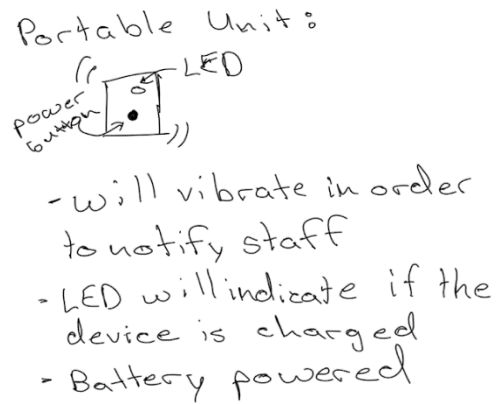 Portable Unit:
LED
power
button
- will vibrate in order
to notify staff
- LED will indicate if the
device is charged
- Battery powered